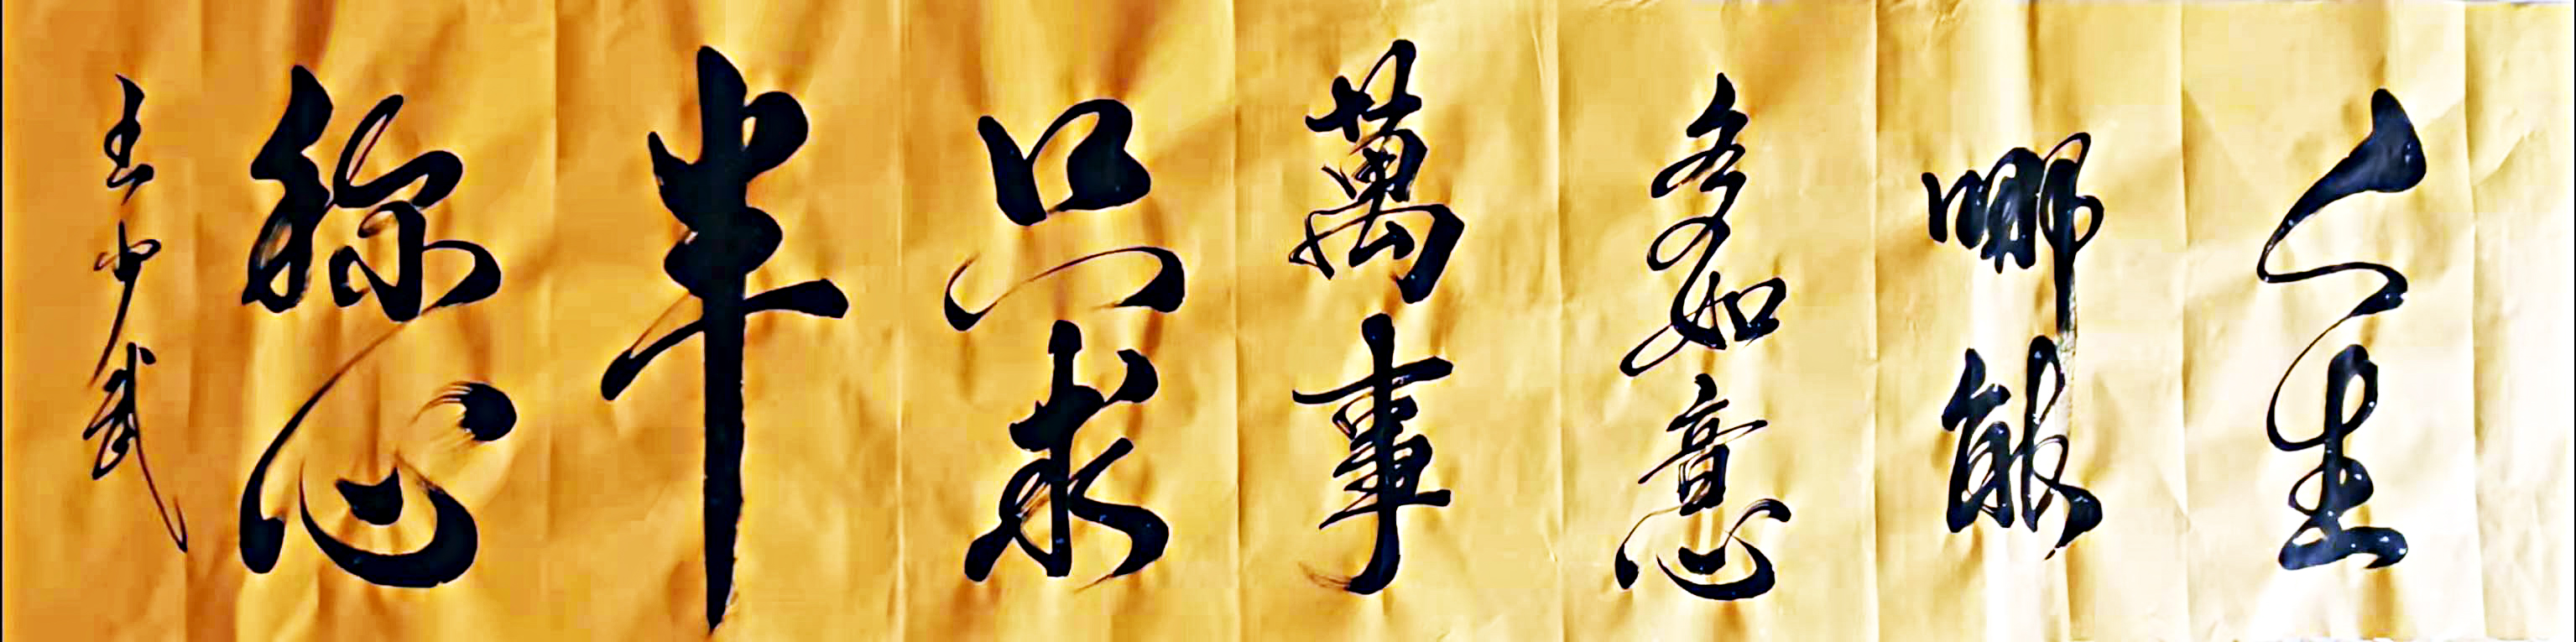 人生
哪能
多如意
萬事
只求
半
称心
王少武